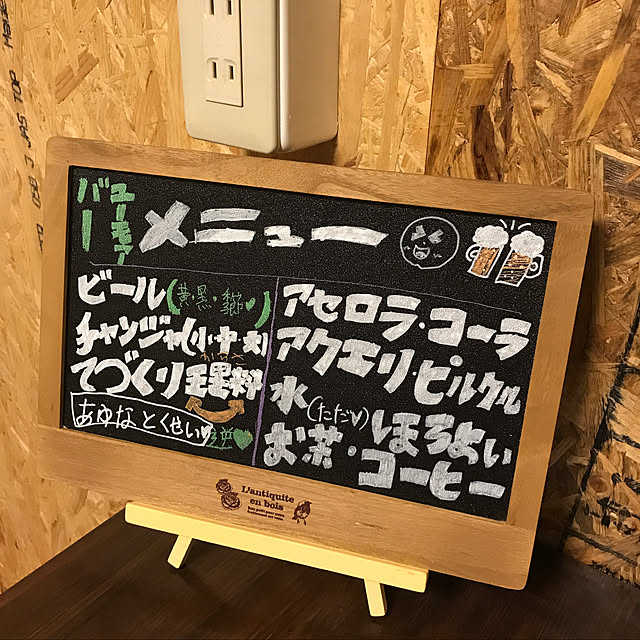 ユーモア
バー
メニュー
ビール(黄・黒・
チャンジャ(小・中・大)
てづくり
あゆなとくせい♥
逆
アセロラ・コーラ
アクエリ・ピルクル
水(ただ♡)ほろよい
お茶・コーヒー
L'antiquite
en bois